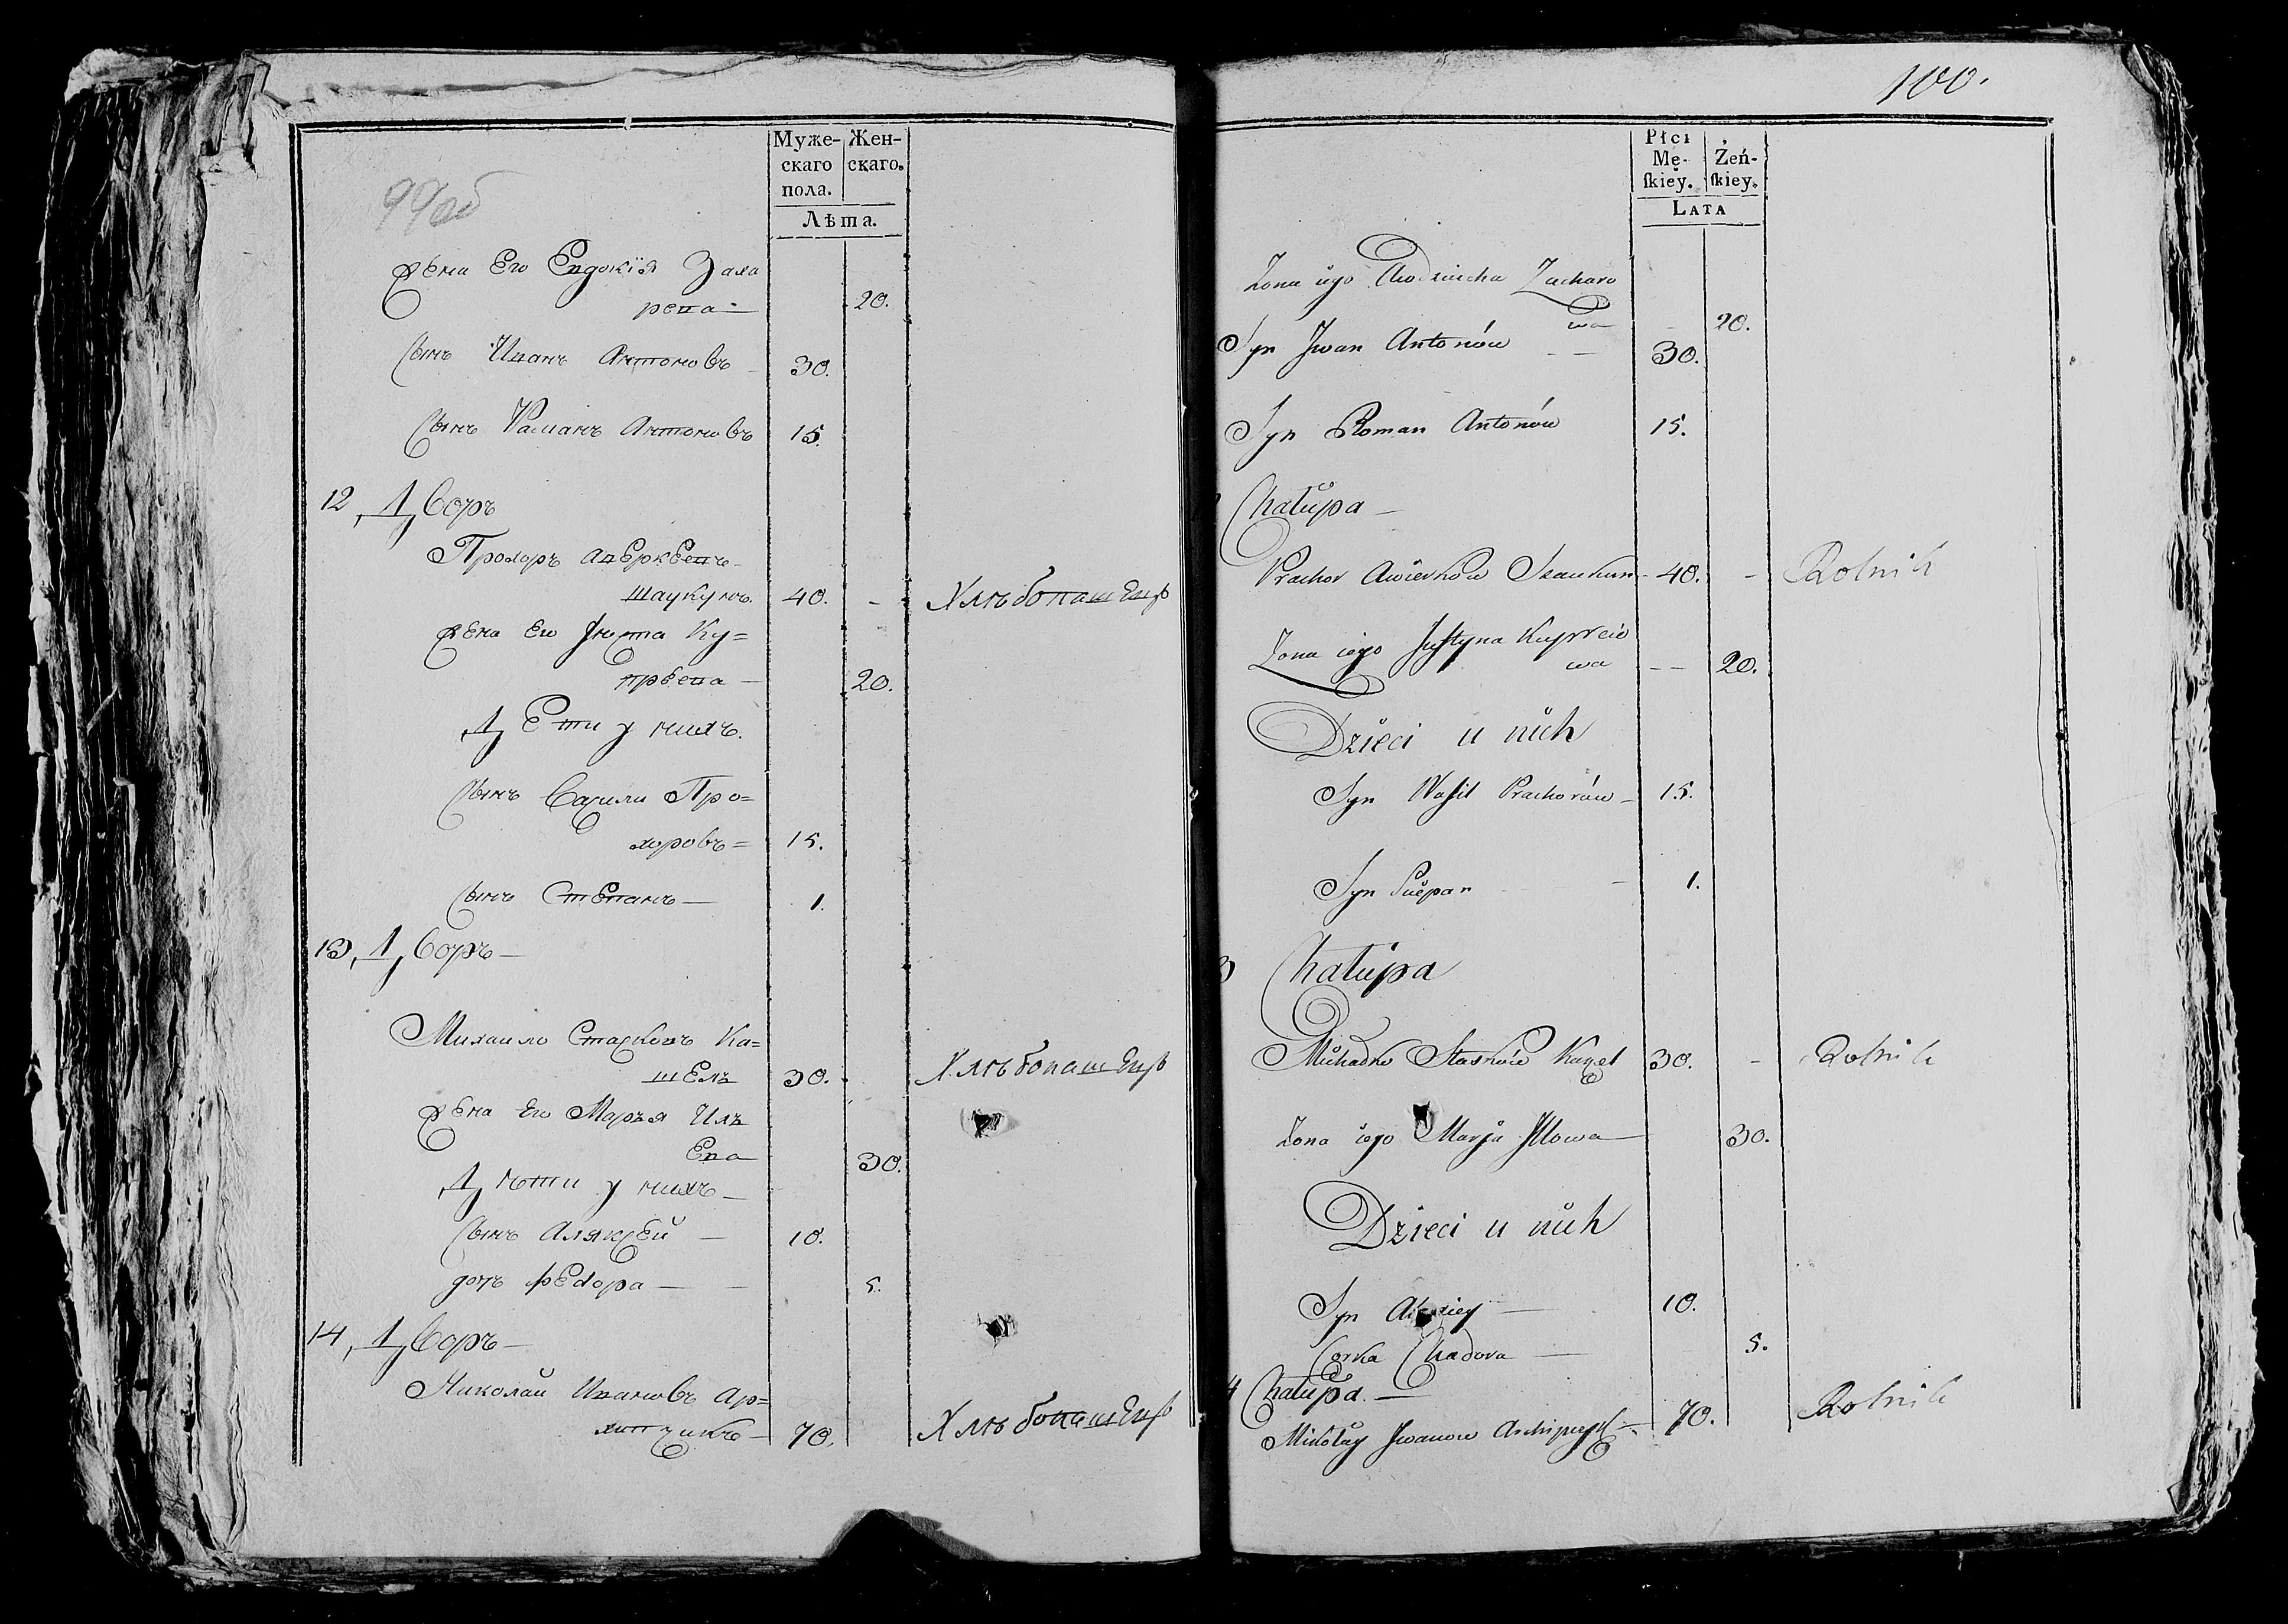 99об
Муже-
скаго
пола.
Жен-
скаго.
Лѣта.
Жена Его Евдокія Заха
рева —
20.
Сынъ Иванъ Антоновъ
30.
Сынъ Раманъ Антоновъ
15.
12, Дворъ
Прохоръ аверкеевъ
шаукунъ.
40. - Хлѣбопашецъ
Жена Его Юста Ку=
преева —
20.
Дети у нихъ.
Сынъ Васили Про=
хоровъ=
15.
Сынъ Степанъ —
1.
13, Дворъ —
Михаило Стасковъ Ка=
шель
30. Хлѣбопашецъ
Жена Его Марья Иль
Ева
30.
Дѣти у нихъ —
Сынъ Аляксей —
10.
дочь Федора —
5.
14, Дворъ —
Николай Ивановъ Ар=
хипчикъ —
70. Хлѣбопашецъ
100.
Płci
Mę-
skiey.
Żeń-
skiey.
LATA
Zona iego Zacharo
wa
20.
Syn Jwan Antonów — —
30.
Syn Roman Antonów
15.
Chałupa —
Prachor Awierków Szaukun - 40. - Rolnik
Zona iego Justyna Kupreio
wa — — 20.
Dzieci u nich
Syn Wasil Prachorów — 15.
Syn Sciepan — 1.
3 Chałupa
Michadko Stasków Kaszel 30. - Rolnik
Zona iego Marja Jllowa — 30.
Dzieci u nich
Syn — 10.
Corka Chadora — 5.
4 Chałupa. —
Mikołay Jwanow — 70. Rolnik